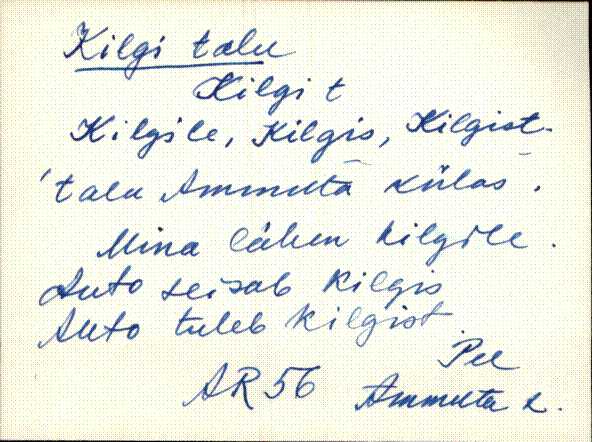 Kilgi talu
Kilgi t
Kilgile, Kilgis, Kilgist.
'talu Ammuta külas.
Mina lähen kilgile.
Auto seisab kilgis
Auto tuleb kilgist
Pee
AR 56 Ammuta k.